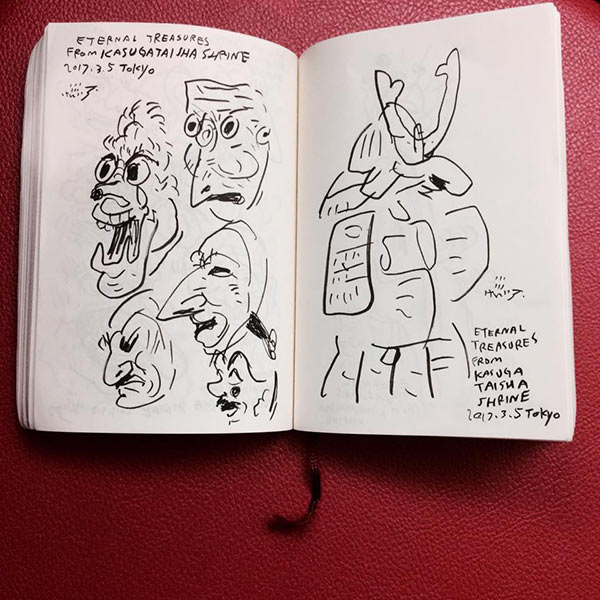 ETERNAL TREASURES
FROM KASUGATAISHA SHRINE
2017.3.5 TOKYO
ETERNAL
TREASURES
FROM
KASUGA
TAISHA
SHRINE
2017.3.5 TOKYO